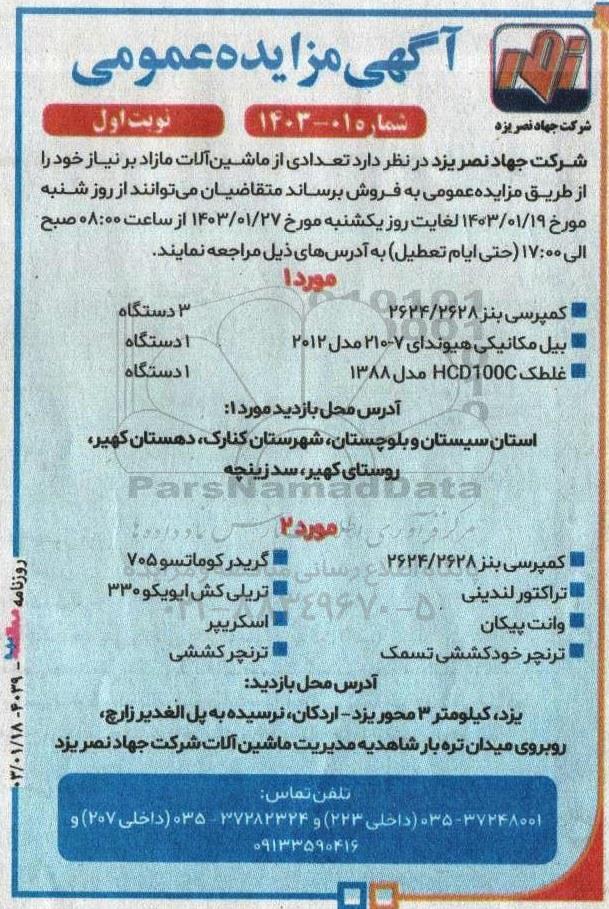 آگهی مزایده عمومی
شرکت جهاد نصر یزد
شماره ۰۱-۱۴۰۳
نوبت اول
شرکت جهاد نصر یزد در نظر دارد تعدادی از ماشین‌آلات مازاد بر نیاز خود را
از طریق مزایده‌عمومی به فروش برساند متقاضیان می‌توانند از روز شنبه
مورخ ۱۴۰۳/۰۱/۱۹ لغایت روز یکشنبه مورخ ۱۴۰۳/۰۱/۲۷ از ساعت ۰۸:۰۰ صبح
الی ۱۷:۰۰ (حتی ایام تعطیل) به آدرس‌های ذیل مراجعه نمایند.
مورد ۱
کمپرسی بنز ۲۶۲۴/۲۶۲۸ ۳ دستگاه
بیل مکانیکی هیوندای ۷-۲۱۰ مدل ۲۰۱۲ ۱ دستگاه
غلطک HCD100C مدل ۱۳۸۸ ۱ دستگاه
آدرس محل بازدید مورد ۱:
استان سیستان و بلوچستان، شهرستان کنارک، دهستان کهیر،
روستای کهیر، سد زینچه
ParsNamadData
مورد ۲
کمپرسی بنز ۲۶۲۴/۲۶۲۸
گریدر کوماتسو ۷۰۵
تراکتور لندینی
تریلی کش ایویکو ۳۳۰
وانت پیکان
اسکریپر
ترنچر خودکششی تسمک
ترنچر کششی
۰۲۱-۸۸۳۴۹۶۷۰-۵
آدرس محل بازدید:
یزد، کیلومتر ۳ محور یزد - اردکان، نرسیده به پل الغدیر زارچ،
روبروی میدان تره بار شاهدیه مدیریت ماشین آلات شرکت جهاد نصر یزد
تلفن تماس:
۰۳۵-۳۷۲۴۸۰۰۱ (داخلی ۲۲۳) و ۳۷۲۸۲۳۲۴ - ۰۳۵ (داخلی ۲۰۷) و
۰۹۱۳۳۵۹۰۴۱۶
روزنامه - ۴۰۳۹ - ۰۳/۰۱/۱۸